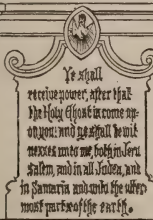 Ye shall
receive power, after that
the Holy Ghost is come up-
on you: and ye shall be wit
nesses unto me, both in Jeru
salem, and in all Judea, and
in Samaria and unto the utter
most part of the earth.